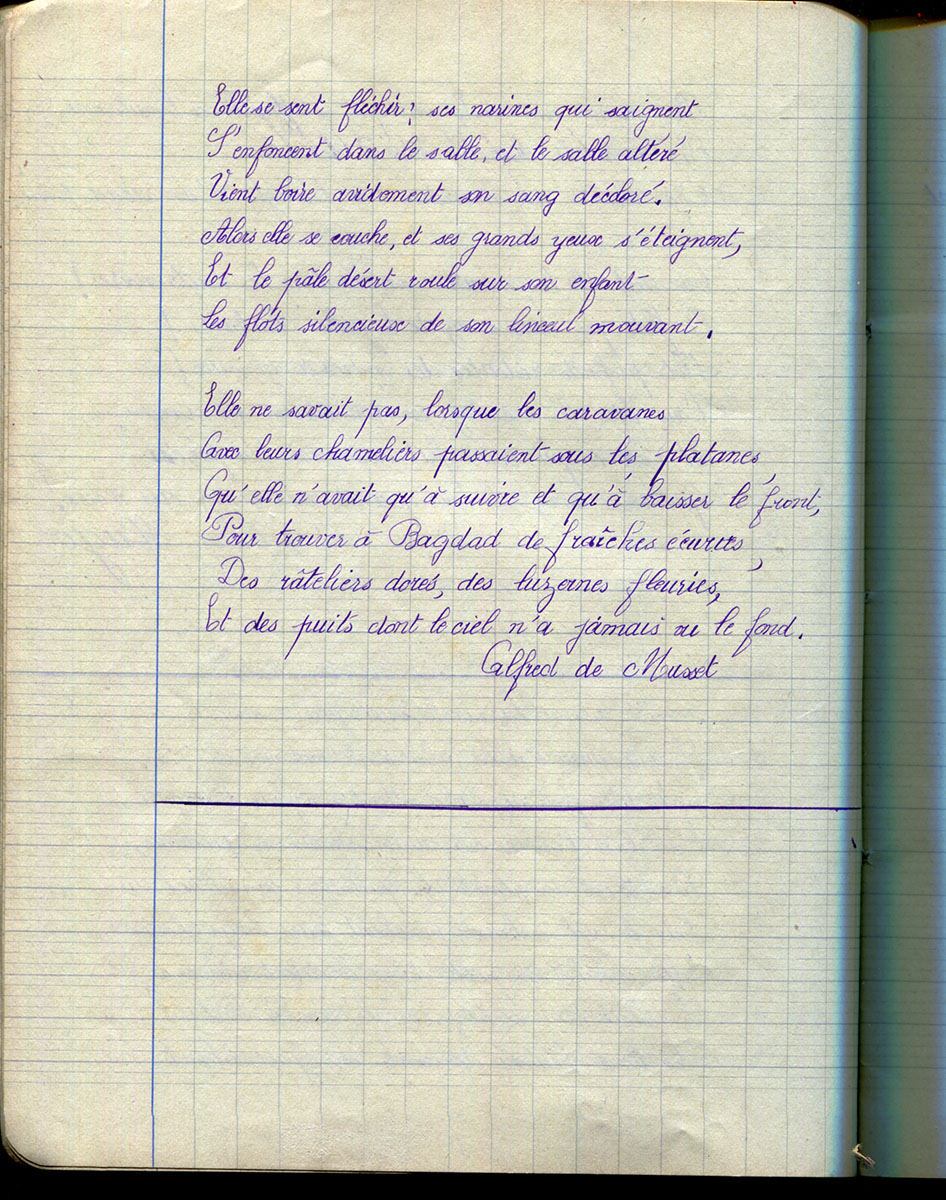 Elle se sent fléchir ; ses narines qui saignent
S'enfoncent dans le sable, et le sable altéré
Vient boire avidement son sang décoloré.
Alors elle se couche, et ses grands yeux s'éteignent,
Et le pâle désert roule sur son enfant
Les flots silencieux de son linceul mouvant.
Elle ne savait pas, lorsque les caravanes
Avec leurs chameliers passaient sous les platanes,
Qu'elle n'avait qu'à suivre et qu'à baisser le front,
Pour trouver à Bagdad de fraîches écuries,
Des râteliers dorés, des luzernes fleuries,
Et des puits dont le ciel n'a jamais vu le fond.
Alfred de Musset